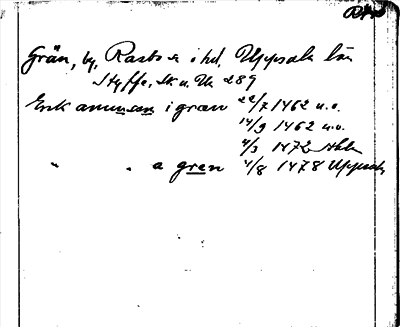 Grän, by, Rasbo s. i hd, Uppsala län
Styffe, Sk. u. Un. 289
Erik amunson i gran 22/7 1462 u.o.
14/9 1462 u.o.
4/3 1472
" " a gren 4/8 1478 Uppsala